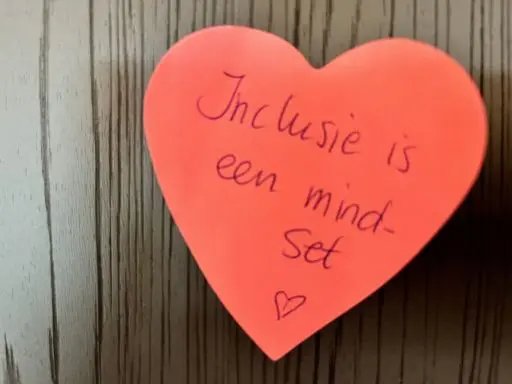 Inclusie is
een mind-
set
♡